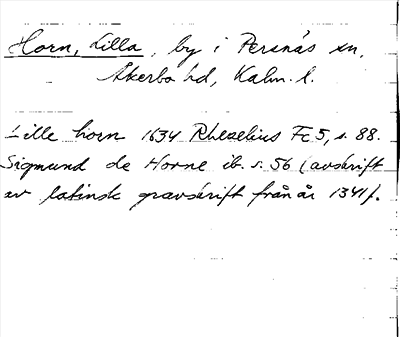 Horn, Lilla, by i Persnäs sn,
Åkerbo hd, Kalm. l.
Lille horn 1634 Rhezelius Fc5, s. 88.
Sigmund de Horne ib. s. 56 (avskrift
av latinsk gravskrift från år 1341).